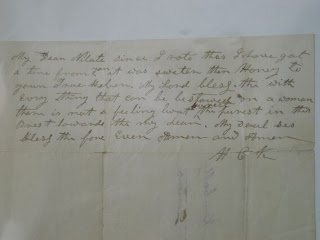 My Dear Mate since I rote this I have got
a line from you it was sweeten then Honey to
yours I am Reborn My Lord bless the with
every thing that can be bestowed on a woman
them is not a feeling but the purest in this
brest towards the my dear. My Soul ses
bless the fore ever Amen and Amen
H C K